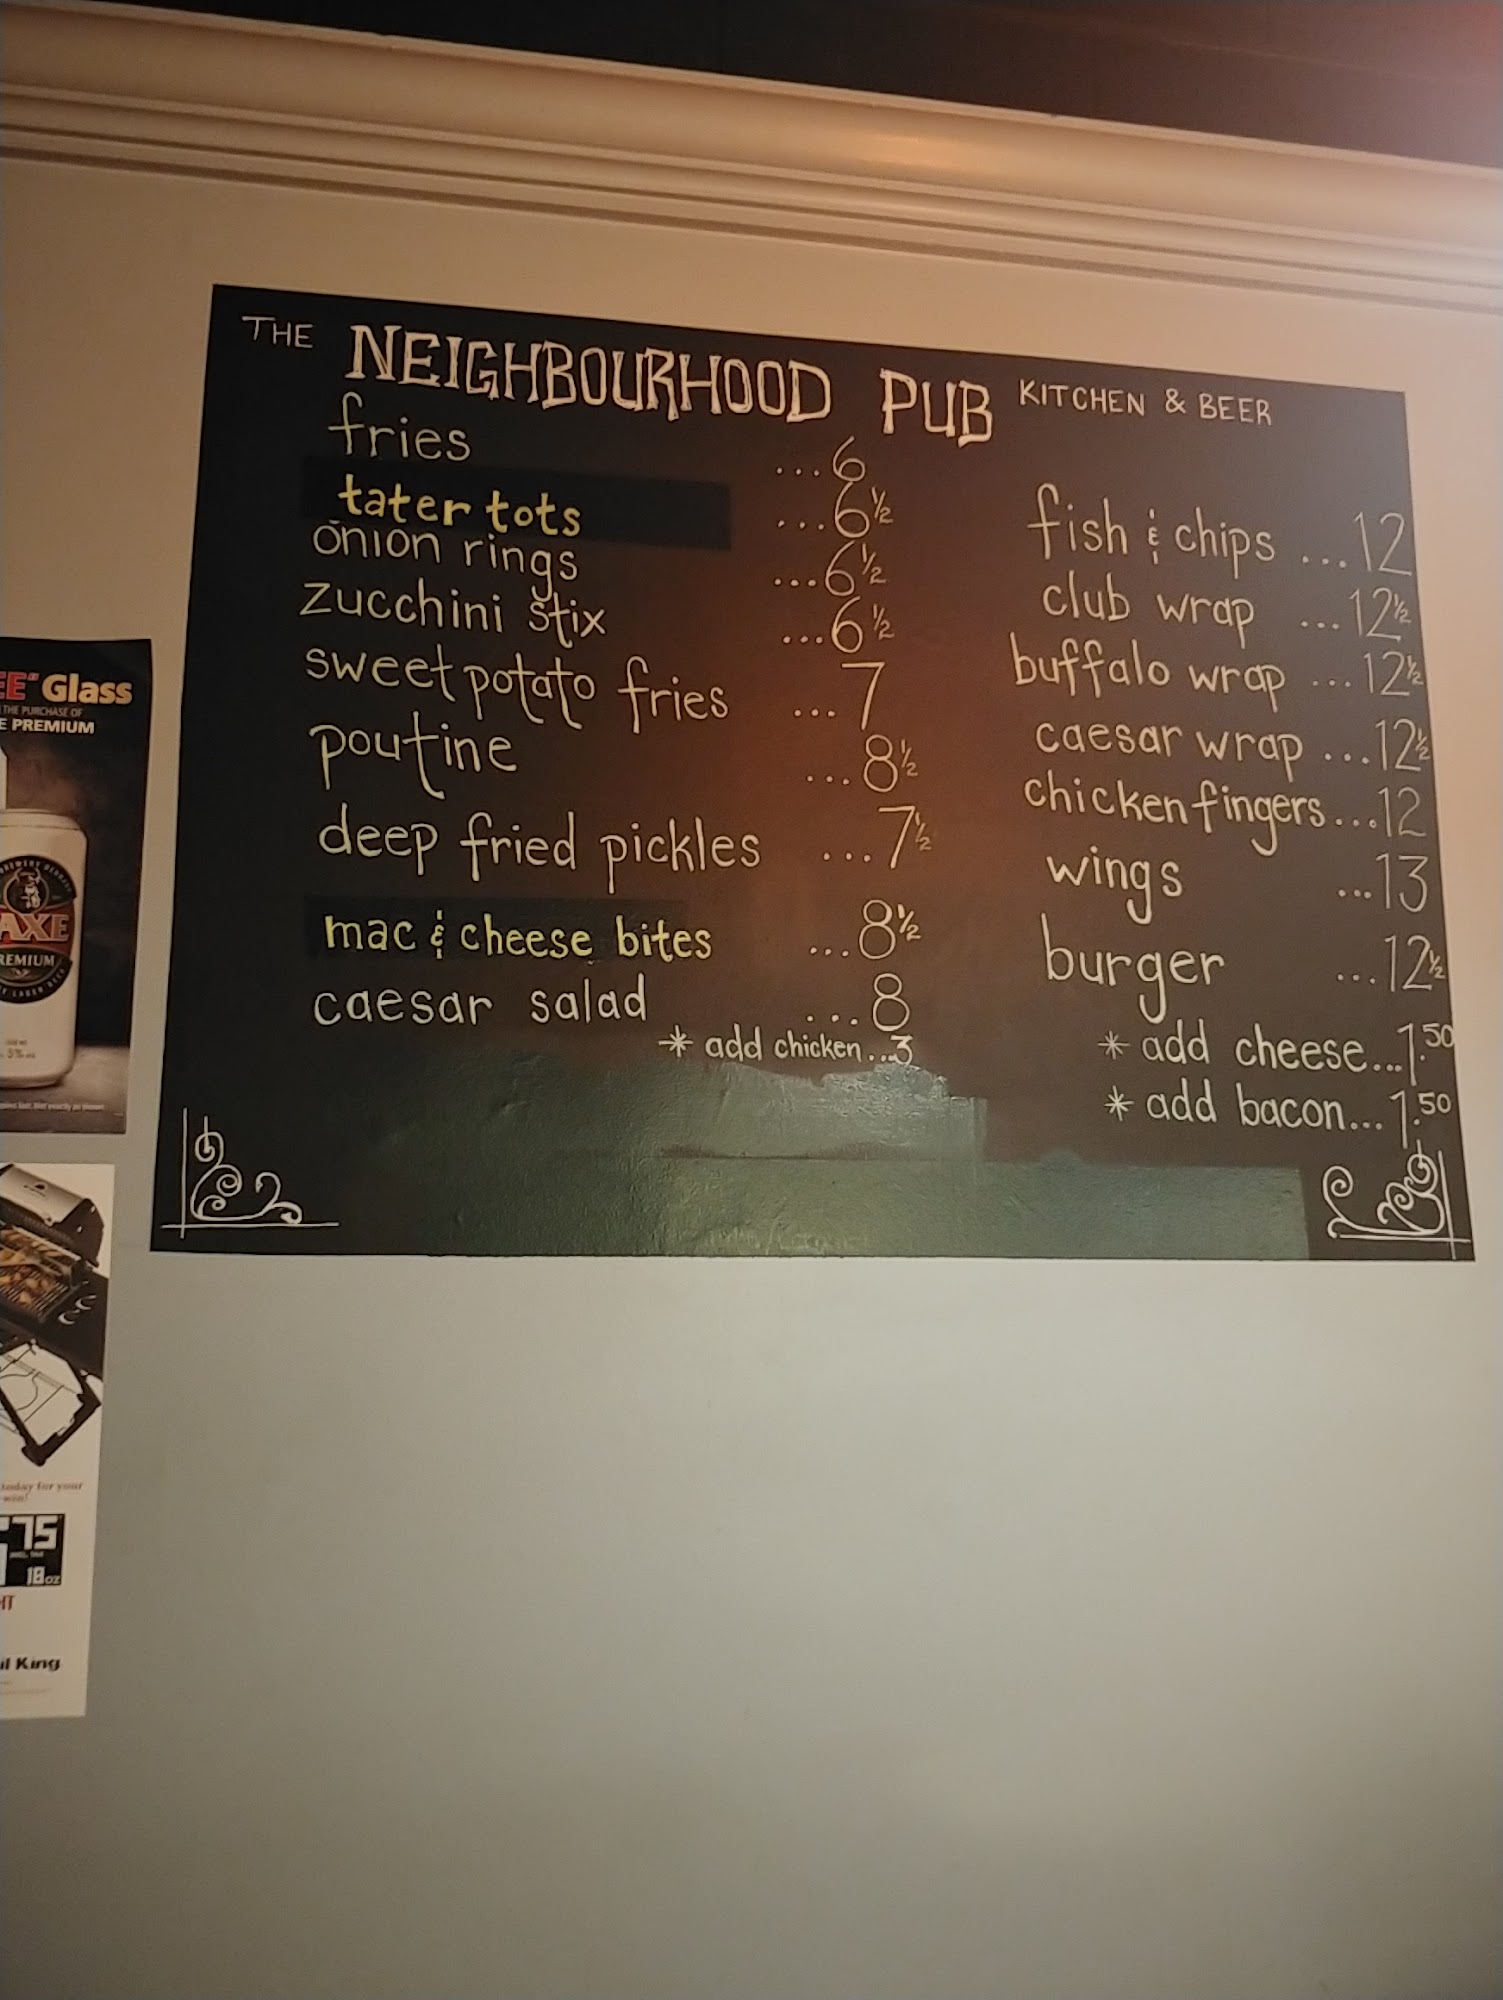 THE NEIGHBOURHOOD PUB KITCHEN & BEER
fries ...6
tater tots ...6½
onion rings ...6½
zucchini stix ...6½
sweet potato fries ...7
poutine ...8½
deep fried pickles ...7½
mac & cheese bites ...8½
caesar salad ...8
* add chicken...3
fish & chips ...12
club wrap ...12½
buffalo wrap ...12½
caesar wrap ...12½
chicken fingers...12
wings ...13
burger ...12½
* add cheese...1.50
* add bacon...1.50
Glass
THE PURCHASE OF
PREMIUM
AXE
today for your
75
18oz
King